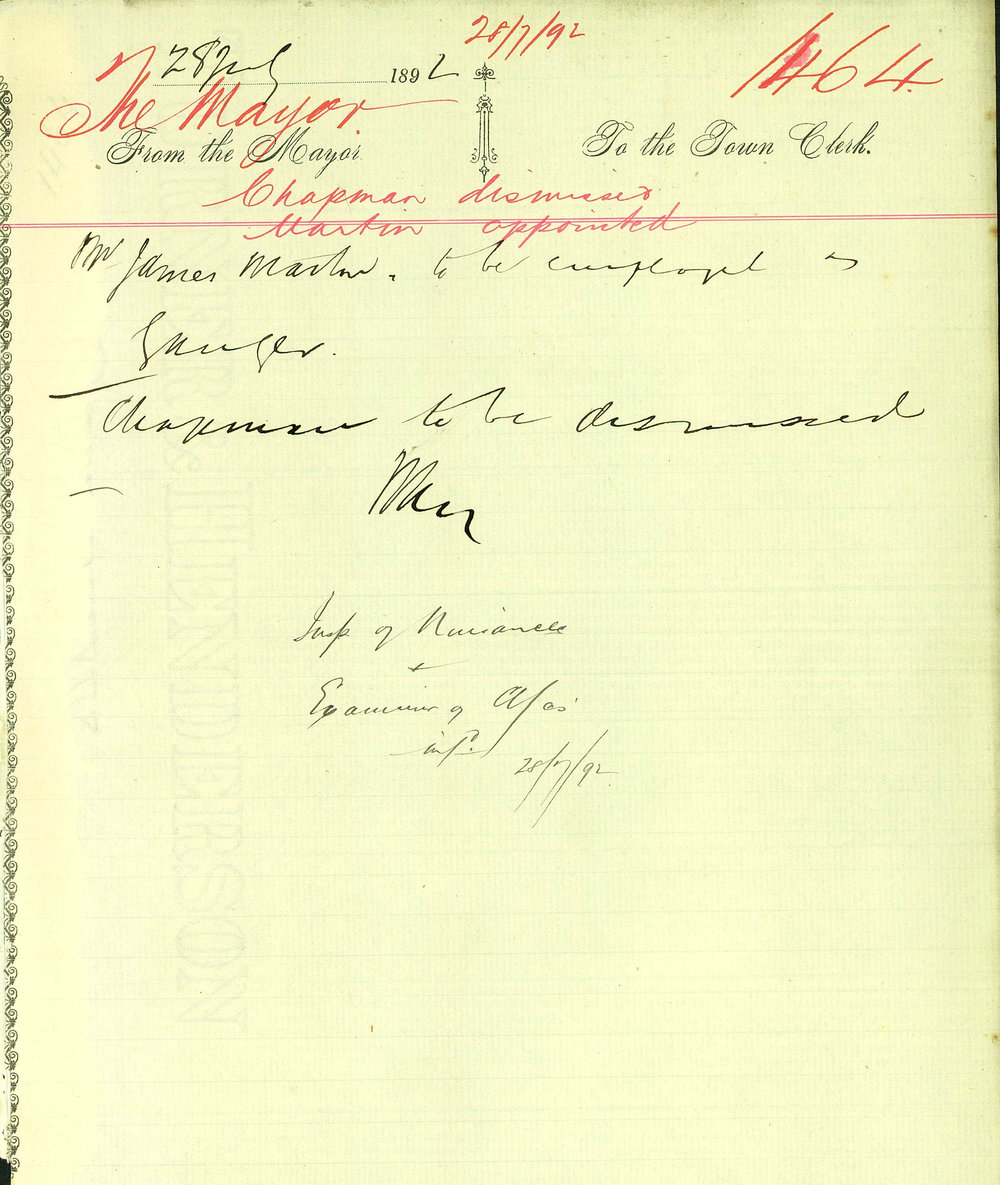 28/7/92
28 July 1892
1464.
The Mayor
From the Mayor.
To the Town Clerk.
Chapman dismissed
Martin appointed
Mr James Martin. to be employed as
Ganger.
Chapman to be dismissed
Insp of Nuisances
+
Examiner of A/cs
infd.
28/7/92